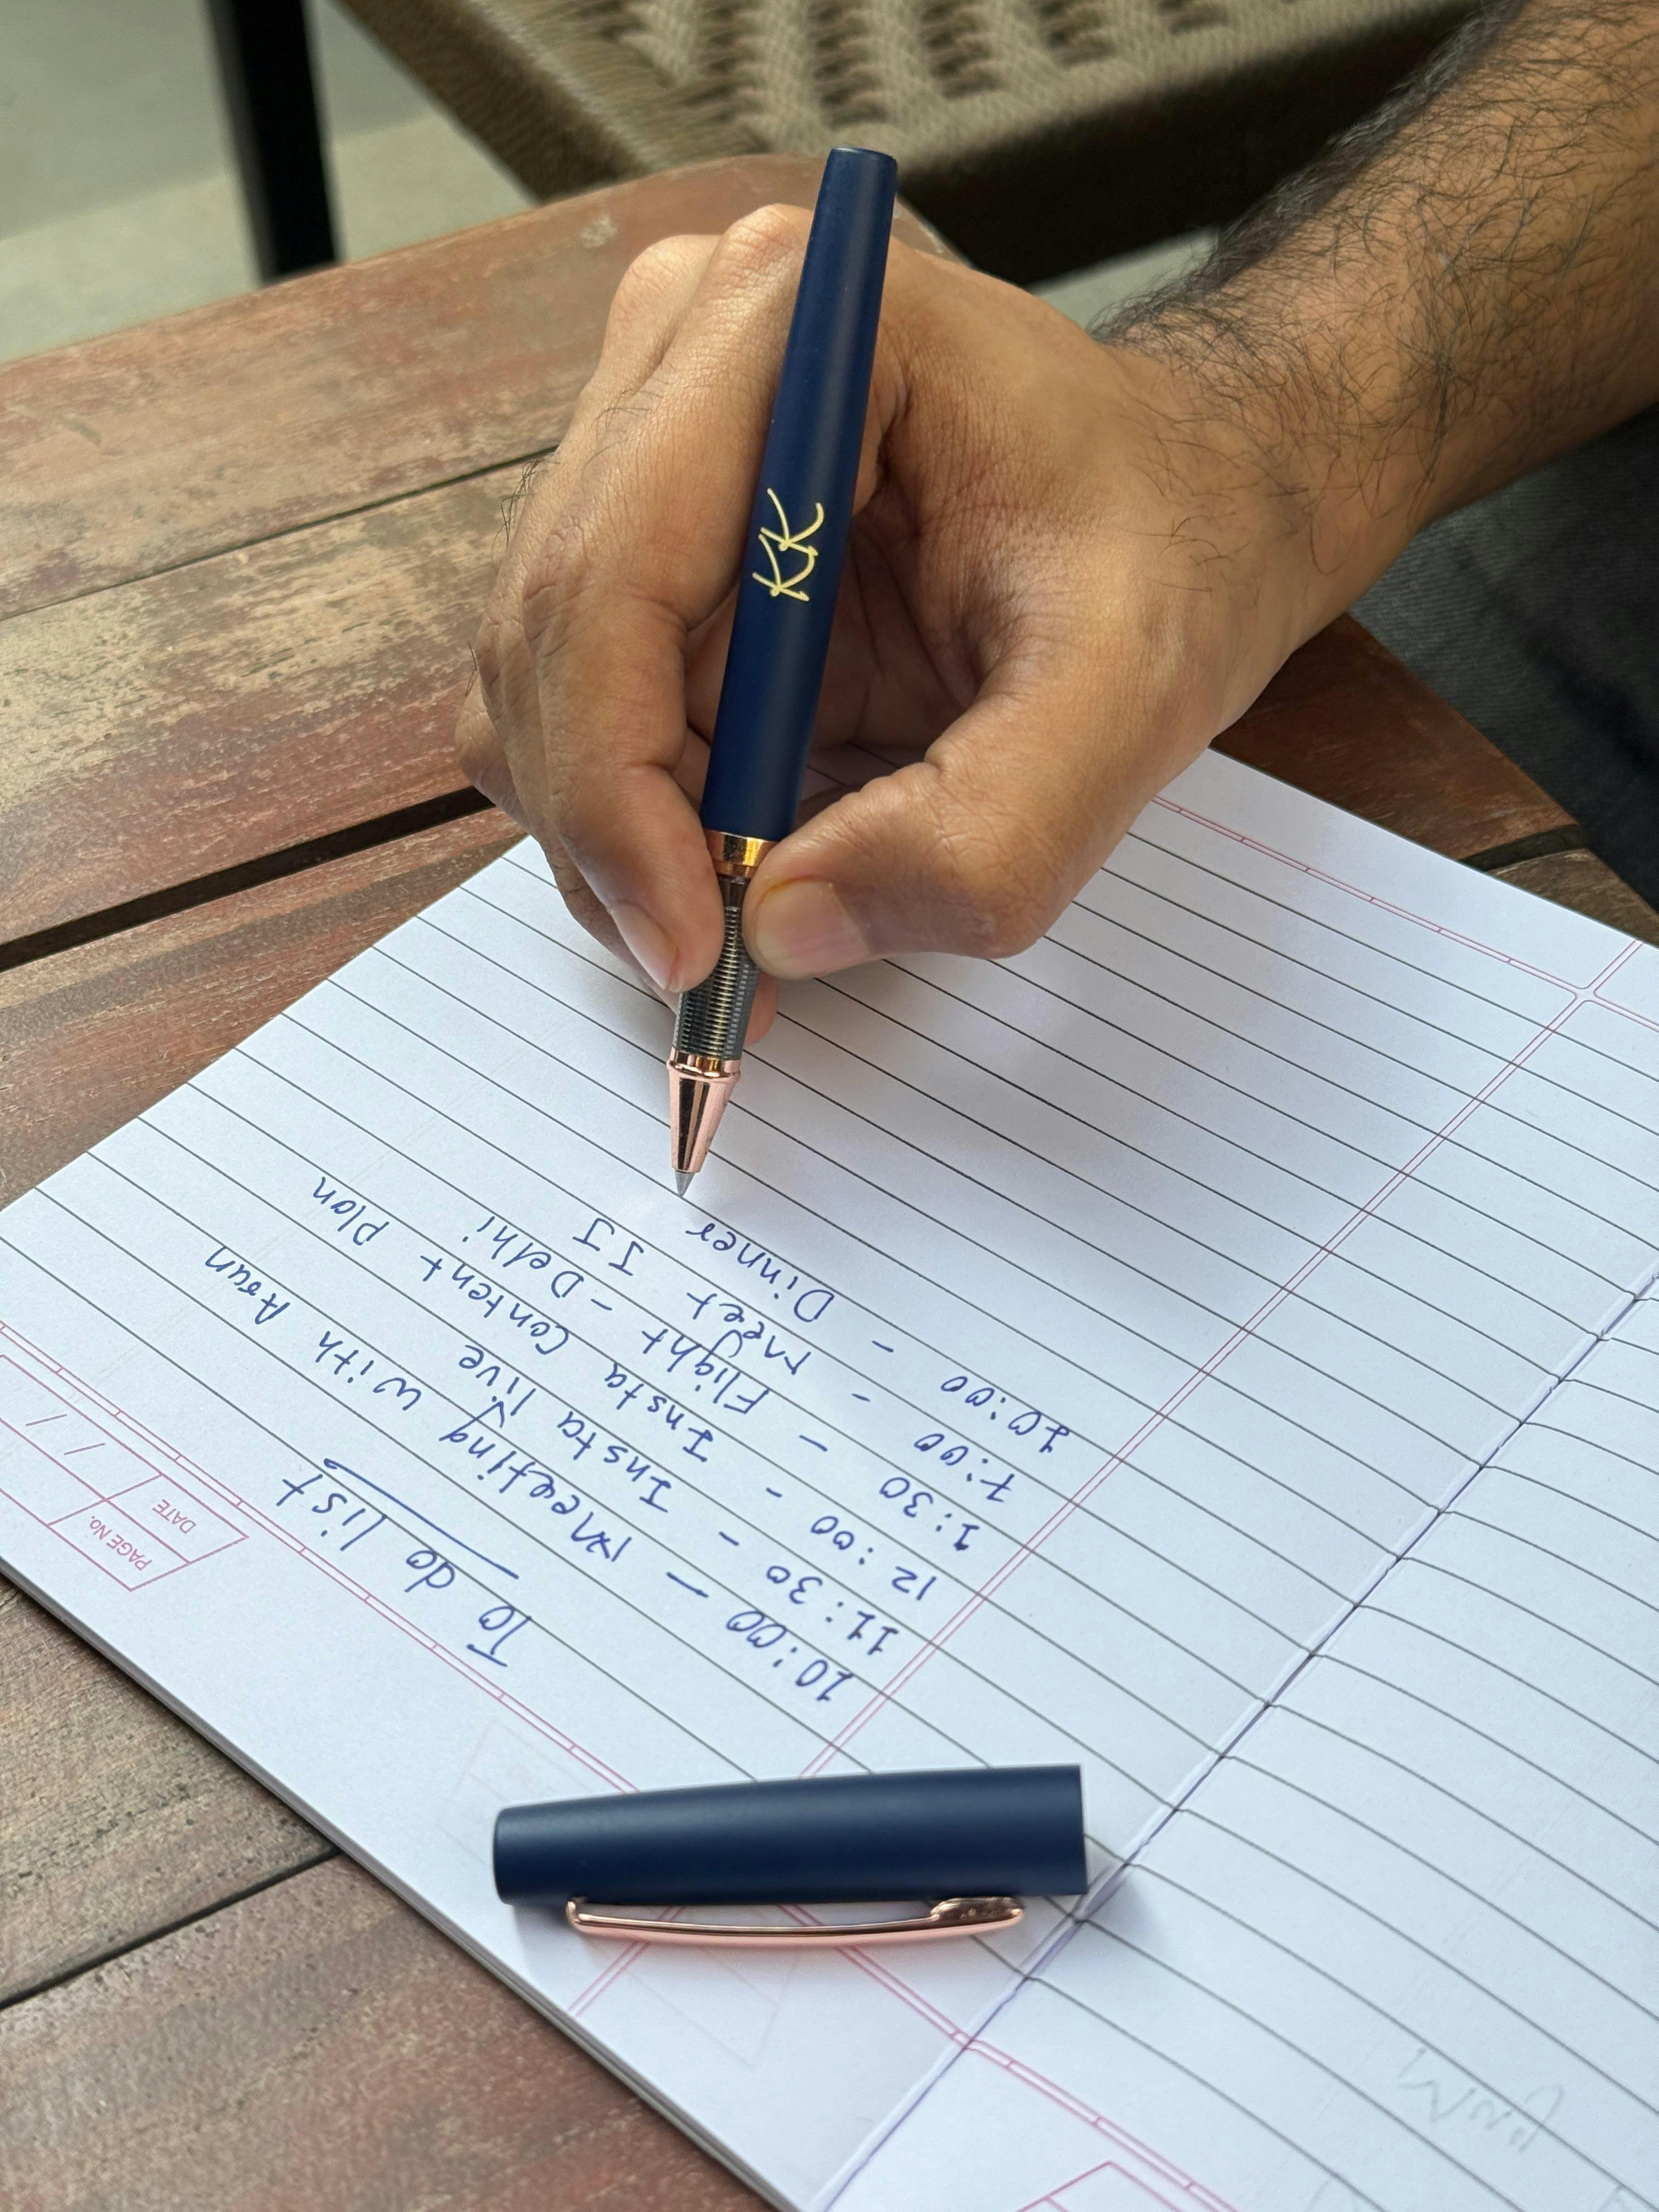 PAGE No.
DATE / /
To do list
10:00 - Meeting with Arun
11:30 - Insta live
12:00 - Insta Content Plan
1:30 - Flight - Delhi
7:00 - Meet JJ
10:00 - Dinner
KK